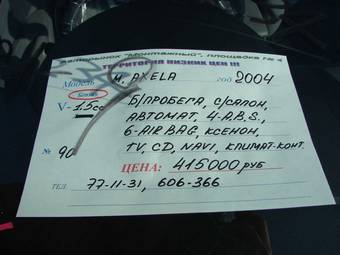 Авторынок "Монтажный", площадка № 4
ТЕРРИТОРИЯ НИЗКИХ ЦЕН !!!
Модель М. AXELA год 2004
Бензин
V- 1.5cc
Б/ПРОБЕГА, С/САЛОН,
АВТОМАТ, 4-A.B.S.,
6-AIR BAG, КСЕНОН,
№ 90 TV, CD, NAVI, КЛИМАТ-КОНТ.
ЦЕНА: 415000 РУБ
ТЕЛ. 77-11-31, 606-366